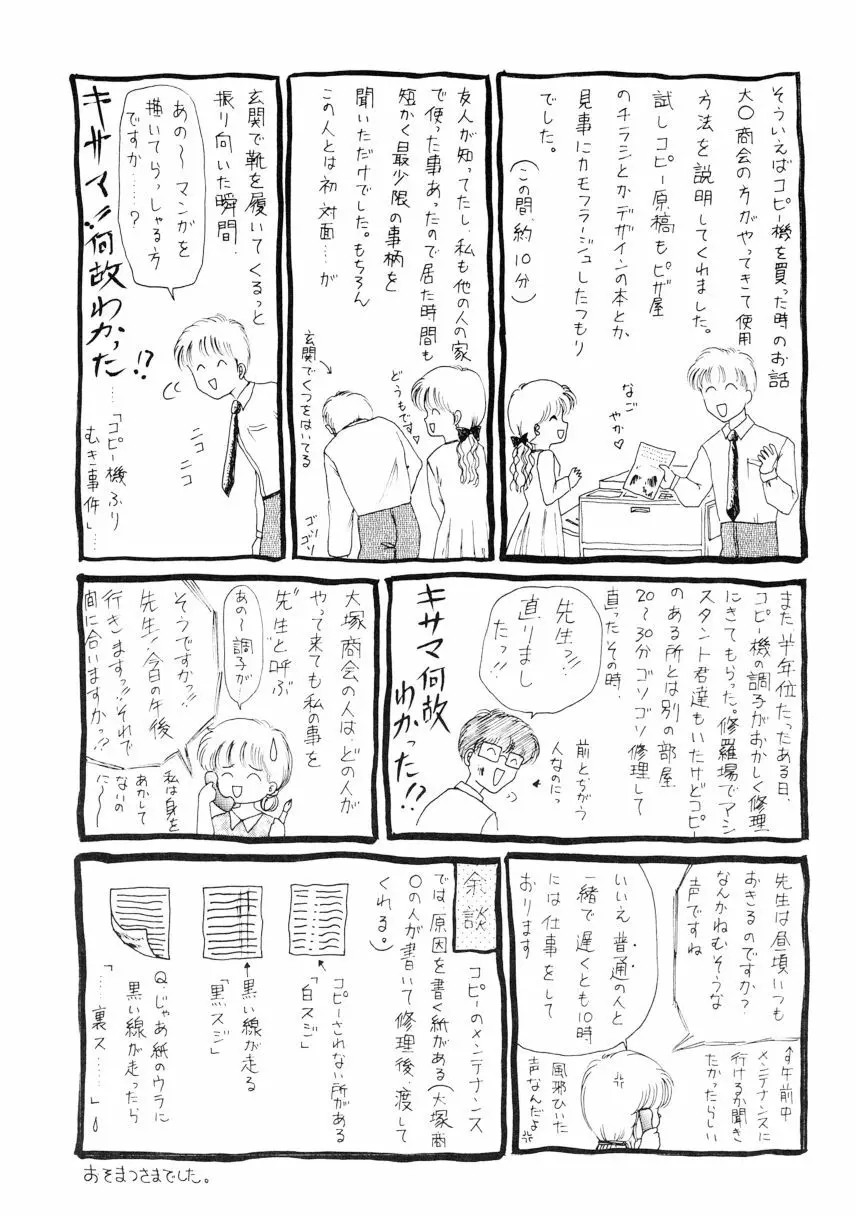 そういえばコピー機を買った時のお話
大〇商会の方がやってきて使用
方法を説明してくれました。
試しコピー原稿もピザ屋
のチラシとかデザインの本とか
見事にカモフラージュしたつもり
でした。
(この間、約10分)
なご
やか♡
友人が知ってたし、私も他の人の家
で使った事あったので居た時間も
短かく最少限の事柄を
聞いただけでした。もちろん
この人とは初対面……が
どうもです♡
玄関でくつをはいてる
ゴソ
ゴソ
玄関で靴を履いてくるっと
振り向いた瞬間、
あの〜マンガを
描いてらっしゃる方
ですか……?
キサマ何故わかった!?
ニコ
ニコ
…「コピー機ふり
むき事件」…
また半年位たったある日、
コピー機の調子がおかしく修理
にきてもらった。修羅場でアシ
スタント君達もいたけどコピー
のある所とは別の部屋
20〜30分ゴソゴソ修理して
直ったその時、
先生っ!!
直りまし
たっ!!
前とちがう
人なのにっ
キサマ何故
わかった!!?
大塚商会の人は、どの人が
やって来ても私の事を
"先生"と呼ぶ
あの〜調子が…
そうですかっ!!
先生!今日の午後
行きますっ!!それで
間に合いますかっ!?
私は身を
あかして
ないの
に〜〜
先生は昼頃いつも
おきるのですか?
なんかねむそうな
声ですね
す午前中
メンテナンスに
行けるか聞き
たかったらしい
いいえ普通の人と
一緒で遅くとも10時
には仕事をして
おります
風邪ひいた
声なんだよ
余談
コピーのメンテナンス
では、原因を書く紙がある(大塚商
〇の人が書いて修理後、渡して
くれる。)
コピーされない所がある
「白スジ」
黒い線が走る
「黒スジ」
Q.じゃあ紙のウラに
黒い線が走ったら
「……裏ス……」
おそまつさまでした。